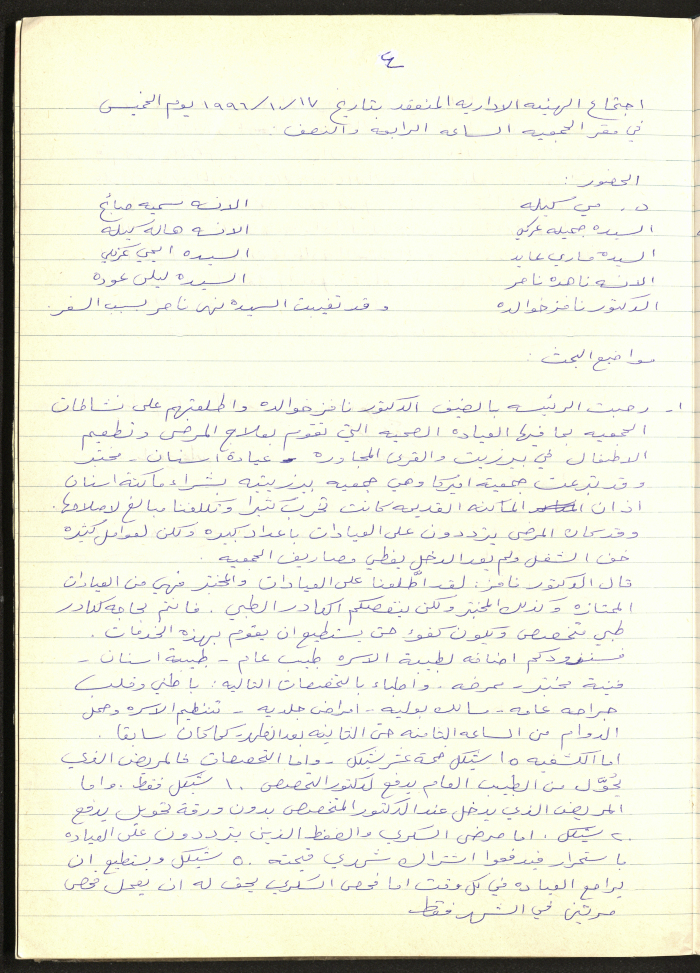 ٤
اجتماع الهيئه الاداريه المنعقد بتاريخ ١٧/١٠/١٩٩٦ يوم الخميس
في مقر الجمعيه الساعه الرابعه والنصف.
الحضور:
د. مي كيله الانسه سميه صايغ
السيده جميله عركي الانسه هاله كيله
السيدة ماري عابد السيده ايمي
الانسه ناهدة ناصر السيده ليلى عوده
الدكتور نافز خوالده وقد تغيبت السيده نهى ناصر بسبب السفر.
مواضيع البحث:
١- رحبت الرئيسه بالضيف الدكتور نافز خوالده واطلعتهم على نشاطات
الجمعيه بما فيها العياده الصحيه التي تقوم بعلاج المرضى وتطعيم
الاطفال في بيرزيت والقرى المجاوره عيادة اسنان - مختبر
وقد تبرعت جمعية اميركا وهي جمعيه بيرزيتيه بشراء ماكنة اسنان
اذ ان الماكنه القديمه كانت تخرب كثيرا وتكلفنا مبالغ لاصلاحها.
وقد كان المرضى يترددون على العيادات باعداد كبيره ولكن لعوامل كثيره
خف الشغل ولم يعد الدخل يغطي مصاريف الجمعيه.
قال الدكتور نافز: لقد اطّلعنا على العيادات والمختبر فهي من العيادات
الممتازه وكذلك المختبر ولكن ينقصكم الكادر الطبي. فانتم بحاجه لكادر
طبي متخصص ويكون كفوء حتى يستطيع ان يقوم بهذه الخدمات.
فسنزودكم اضافه لطبيبة الاسره طبيب عام - طبيبة اسنان -
فنية مختبر - ممرضه. واطباء بالتخصصات التاليه: باطني وقلب
جراحه عامه - مسالك بوليه - امراض جلديه - تنظيم الاسره وجعل
الدوام من الساعه الثامنه حتى الثانيه بعد الظهر كما كان سابقا.
اما الكشفيه ١٥ شيكل خمسة عشر شيكل - واما التخصصات فالمريض الذي
يُحوَّل من الطبيب العام يدفع لدكتور التخصص ١٠ شيكل فقط. واما
المريض الذي يدخل عند الدكتور المتخصص بدون ورقة تحويل يدفع
٢٠ شيكل. اما مرضى السكري والضغط الذين يترددون على العياده
باستمرار فيدفعوا اشتراك شهري قيمته ٥٠ شيكل ويستطيع ان
يراجع العياده في كل وقت اما فحص السكري يحق له ان يعمل فحص
مرتين في الشهر فقط